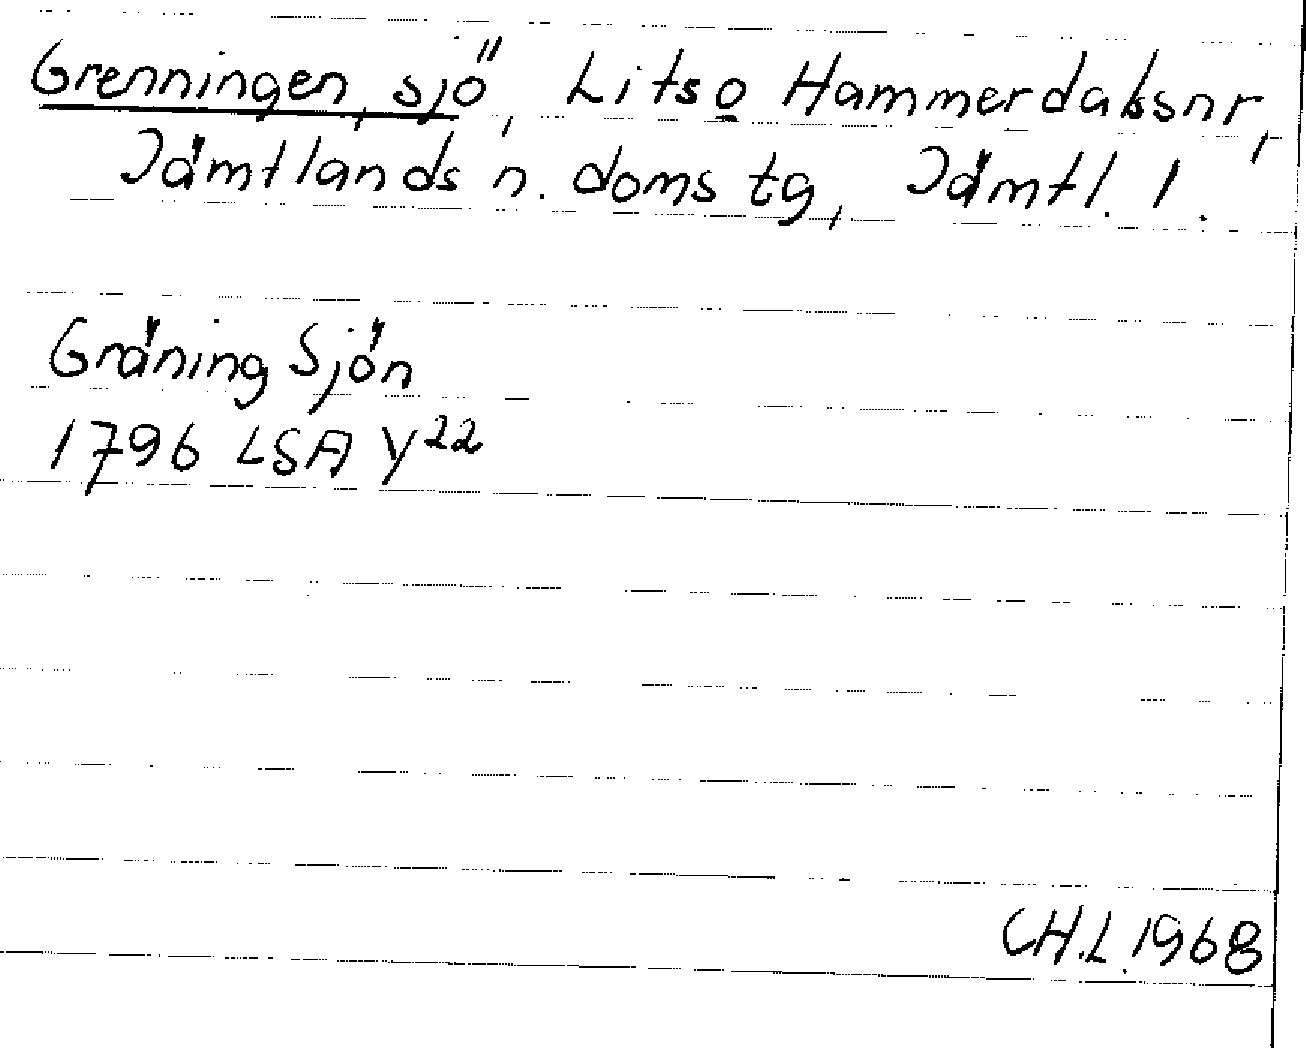 Grenningen, sjö, Lits o Hammerdalsnr,
Jämtlands n. doms tg, Jämtl. l.
Gräning Sjön
1796 LSA Y22
CH.L.1968